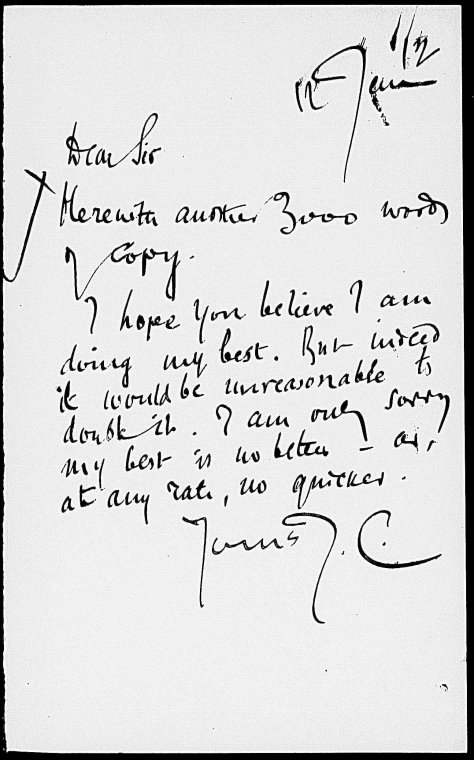 12 Jan
Dear Sir
Herewith another 3000 words
of copy.
I hope you believe I am
doing my best. But indeed
it would be unreasonable to
doubt it. I am only sorry
my best is no better – or,
at any rate, no quicker.
Yours J. C.